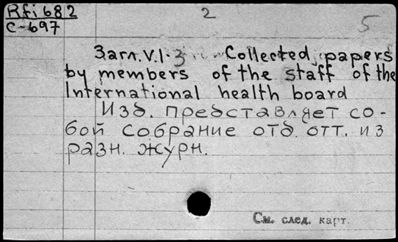 Rfi 682
2
5
C-697
Загл. V.1-3 Collected papers
by members of the staff of the
International health board
Изд. представляет со-
бой собрание отд. отт. из
разн. журн.
См. след. карт.